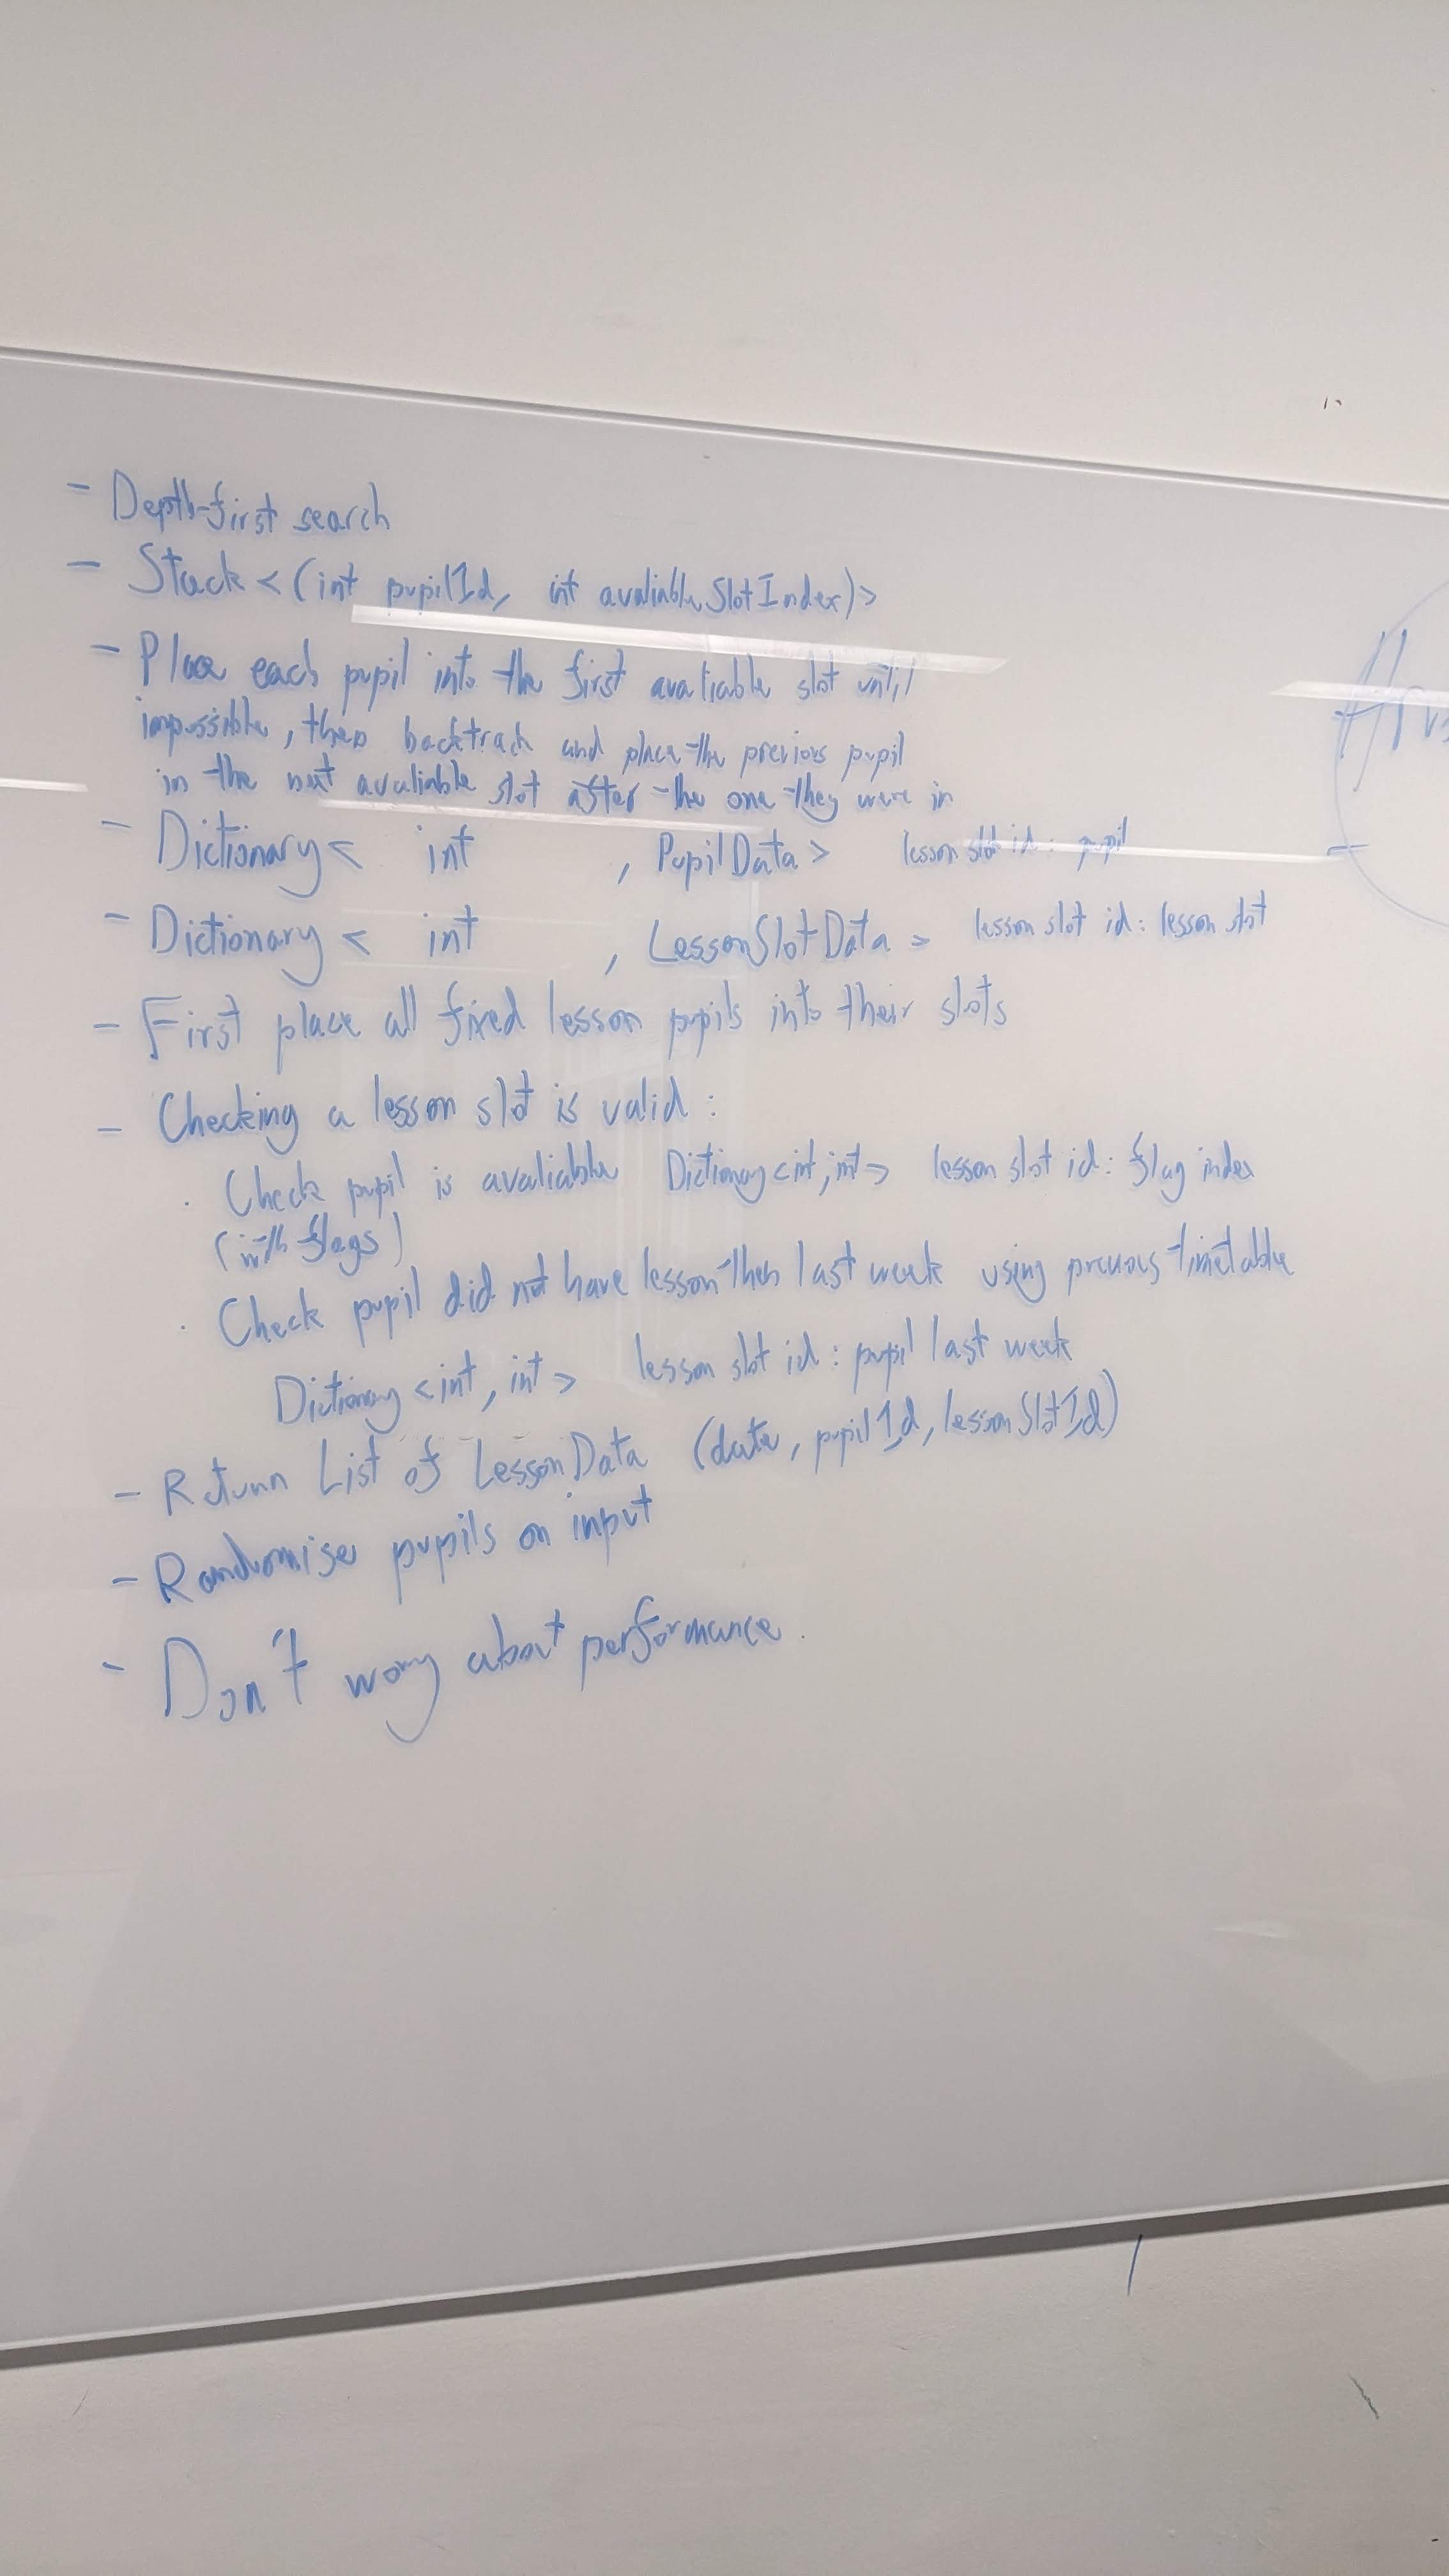 - Depth-first search
- Stack <(int pupilId, int avaliableSlotIndex)>
- Place each pupil into the first avaliable slot until
impossible, then backtrack and place the previous pupil
in the next avaliable slot after the one they were in
- Dictionary < int , PupilData > lesson slot id: pupil
- Dictionary < int , LessonSlotData > lesson slot id: lesson slot
- First place all fixed lesson pupils into their slots
- Checking a lesson slot is valid:
. Check pupil is avaliable Dictionary<int, int> lesson slot id: flag index
(with flags)
. Check pupil did not have lesson then last week using previous timetable
Dictionary <int, int> lesson slot id: pupil last week
- Return List of LessonData (date, pupilId, lessonSlotId)
- Randomise pupils on input
- Don't worry about performance.